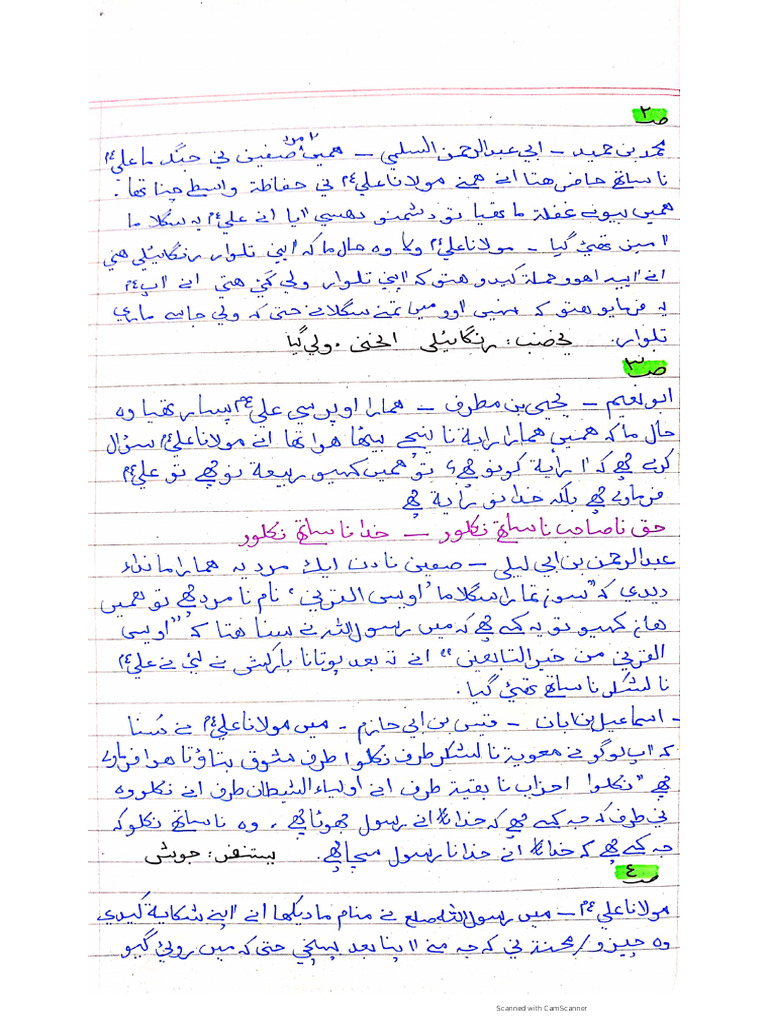 ص ٢
محمد بن حميد – ابي عبد الرحمن السلمي – همیں ٢ مرد صفين ني جنگ ما علي ع م
نا ساتھ حاضر هتا انے همنے مولانا علي ع م ني حفاظة واسطے چنا تھا.
همیں بيوئے غفلة ما تھيا تو دشمنو دھسي ايا انے علي ع م يہ سگلا ما
امين تھئي گيا – مولانا علي ع م وكا وہ حال ما كه اپني تلوار رنگائيلي هتي
انے اپيہ اهوو حملة كيدو هتو كه اپني تلوار ولي گئي هتي انے اپ ع م
يہ فرمايو هتو كه نهيں اوو ميں تمنے سگلانے حتى كه ولي جاسے ماري
تلوار. يخضب: رنگائيلي انحنى. ولي گيا
ص ٣
ابو نعيم – يحيى بن مطرف – همارا اوپر سي علي ع م پسار تھيا وہ
حال ما كه همیں همارا راية نا نيچے بيٹھا هوا تھا انے مولانا علي ع م سؤال
كرے چھے كه ا راية كونو چھے؟ تو همیں كهيو ربيعة نو چھے تو علي ع م
فرماوے چھے بلكه خدا نو راية چھے
حق نا صاحب نا ساتھ نكلور – خدا نا ساتھ نكلور
عبد الرحمن بن ابي ليلى – صفين نا دن ايك مرد يہ همارا ما نداء
ديدي كه "سوں تمارا سگلا ما 'اويس القرني' نام نا مرد چھے تو همیں
هاں كهيو تو يہ كہے چھے كه ميں رسول الله نے سنا هتا كه "اويس
القرني من خير التابعين" انے تہ بعد پوتانا باركش نے لئي نے علي ع م
نا لشكر نا ساتھ تھئي گيا.
– اسماعيل بن ابان – قيس بن ابي حازم – ميں مولانا علي ع م نے سُنا
كه اپ لوگو نے معوية نا لشكر طرف نكلوا طرف مشوق بناؤتا هوا فرماوے
چھے "نكلوا احزاب نا بقية طرف انے اولياء الشيطان طرف انے نكلو وہ
ني طرف كه جہ كہے چھے كه خدا تع انے رسول جھوٹا چھے، وہ نا ساتھ نكلو كه
جہ كہے چھے كه خدا تع انے خدا نا رسول سچا چھے. يستنفر: جوش
ص ٤
مولانا علي ع م – ميں رسول الله صلع نے منام ما ديكھا انے اپنے شكاية كيدي
وہ چيزو/محنة ني كه جہ منے اپنا بعد پهنچي حتى كه ميں روئي گيو
Scanned with CamScanner